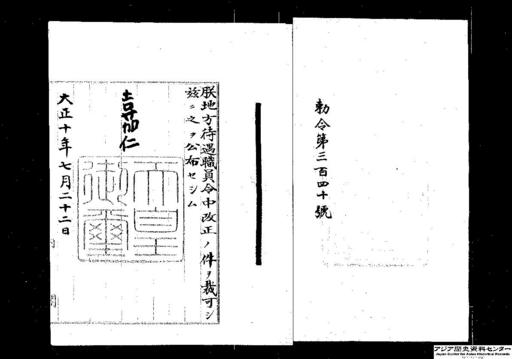 勅令第三百四十號
朕地方待遇職員令中改正ノ件ヲ裁可シ
茲ニ之ヲ公布セシム
嘉仁
天皇
御璽
大正十年七月二十二日
アジア歴史資料センター
Japan Center for Asian Historical Records